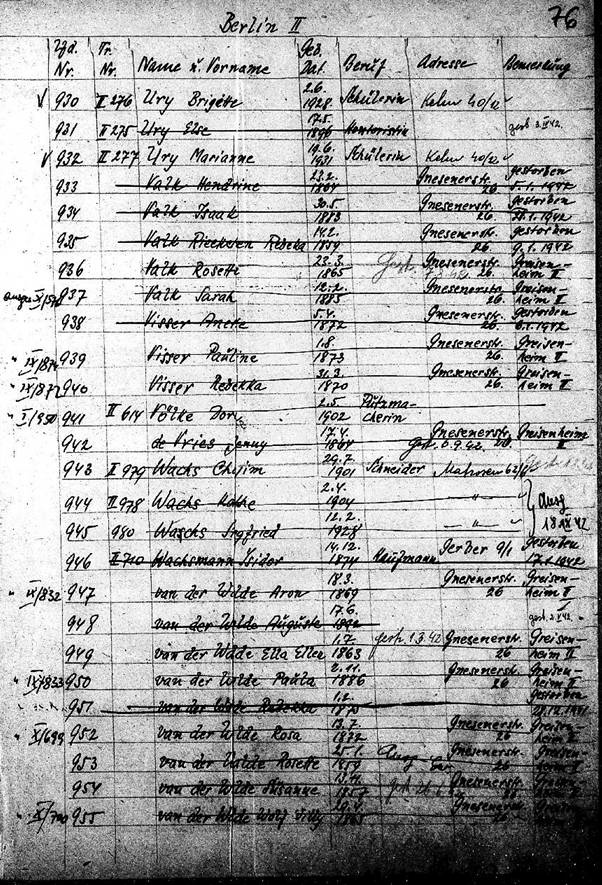 Berlin II 76
Lfd. Nr. Tr. Nr. Name u. Vorname Geb. Dat. Beruf Adresse Bemerkung
930 II 276 Ury Brigitte 2.6. 1928 Schülerin Kelm 40/
931 II 275 Ury Else 17.5. 1896 Kontoristin gest. 3. 42.
932 II 277 Ury Marianne 19.6. 1931 Schülerin Kelm 40/
933 Valk Hendrine 23.2. 1864 Gnesenerstr. 26 gestorben 5.1.1942
934 Valk Isaak 30.5 1883 Gnesenerstr. 26. gestorben 1.1942
935 Valk Rebeka 14.2. Gnesenerstr. 26. gestorben 9.1.1942
936 Valk Rosette 23.3. 1865 Gest. Gnesenerstr. 26. Greisen-heim II
937 Valk Sarah 1885 Gnesenerstr. 26. Greisen-heim II
938 Visser Aneke 5.4. 1872 Gnesenerstr. 26. Gestorben 6.1.1942
IX/874 939 Visser Pauline 1.8. 1873 Gnesenerstr. 26. Greisen-heim II
IX/872 940 Visser Rebekka 31.3. 1870 Gnesenerstr. 26. Greisen-heim II
I/950 941 II 614 Völke Dora 2.5 1902 Putzma-cherin
942 de Vries Jenny 17.4. 1864 Gnesenerstr. 26. Greisenheim II
943 II 979 Wachs Chajim 29.7. 1901 Schneider 62/
944 II 978 Wachs Käthe 2.4. 1904 " Ausg
945 980 Waschs Sigfried 12.2. 1928 " 18 42
946 II 710 Wachsmann Isidor 14.12. 1874 Kaufmann Gerber 9/1 Gestorben 1942
IX/832 947 van der Wilde Aron 18.3. 1869 Gnesenerstr. 26 Greisen-heim II
948 van der Wilde Auguste 17.6. gest. 2. 42.
949 van der Wilde Ella Ellen 1.7. 1863 gest. 1.3.42 Gnesenerstr. 26 Greisen-heim II
IX/833 950 van der Wilde Paula 2.11. 1886 Gnesenerstr. 26 Greisen-heim II
951 van der Wilde Rebekka 1.2. 1875 Gestorben 12.1941
X/699 952 van der Wilde Rosa 13.7. 1872 Gnesenerstr. 26 Greisen-heim II
953 van der Wilde Rosette 25.1. 1859 Gnesenerstr. 26 Greisen-heim II
954 van der Wilde Susanne 1857 Gnesenerstr. Greisen-heim II
955 van der Wilde Wolf Willy 20.4. 1865 Gnesenerstr. 26 Greisen-heim II